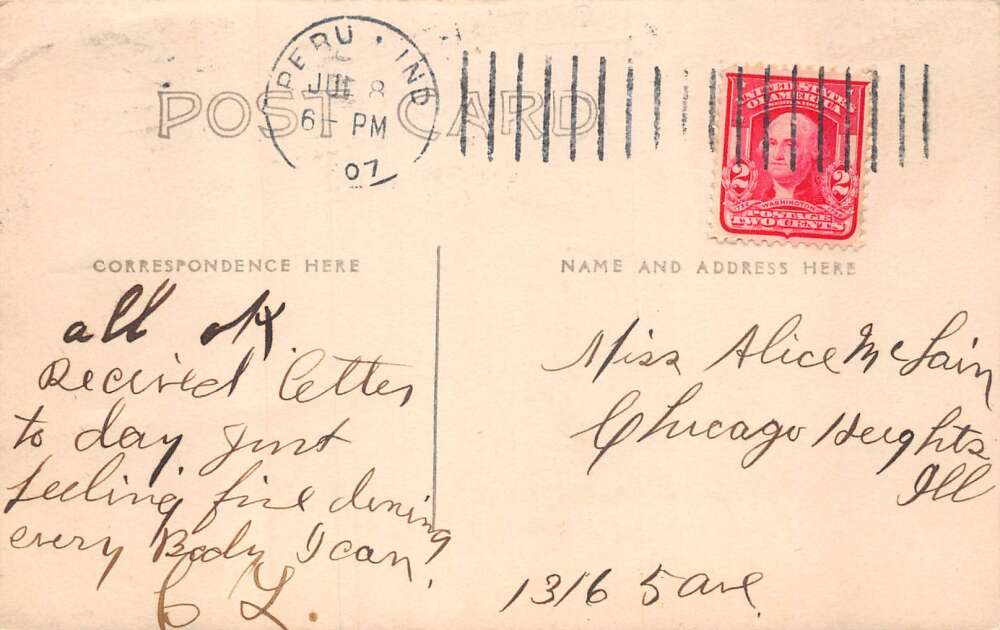 PERU · IND
JUL 8
6- PM
07
POST CARD
UNITED STATES
OF AMERICA
2 2
WASHINGTON
POSTAGE
TWO CENTS
CORRESPONDENCE HERE
NAME AND ADDRESS HERE
all ok
Recived letter
to day Just
feeling fine
every Body I can.
C L.
Miss Alice McLain
Chicago Heights
Ill
1316 5 ave.